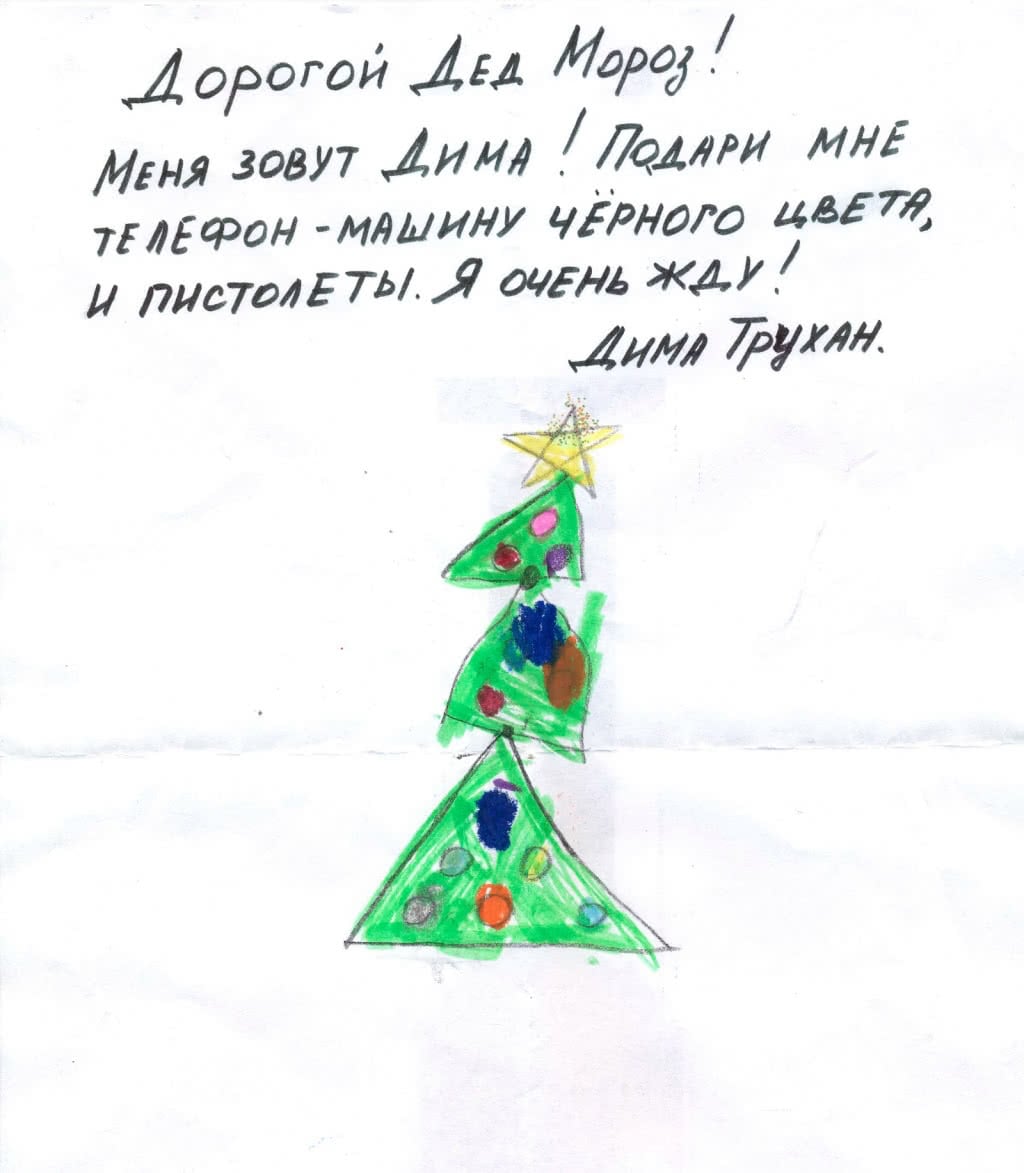 Дорогой Дед Мороз!
Меня зовут Дима! Подари мне
телефон-машину чёрного цвета,
и пистолеты. Я очень жду!
Дима Трухан.